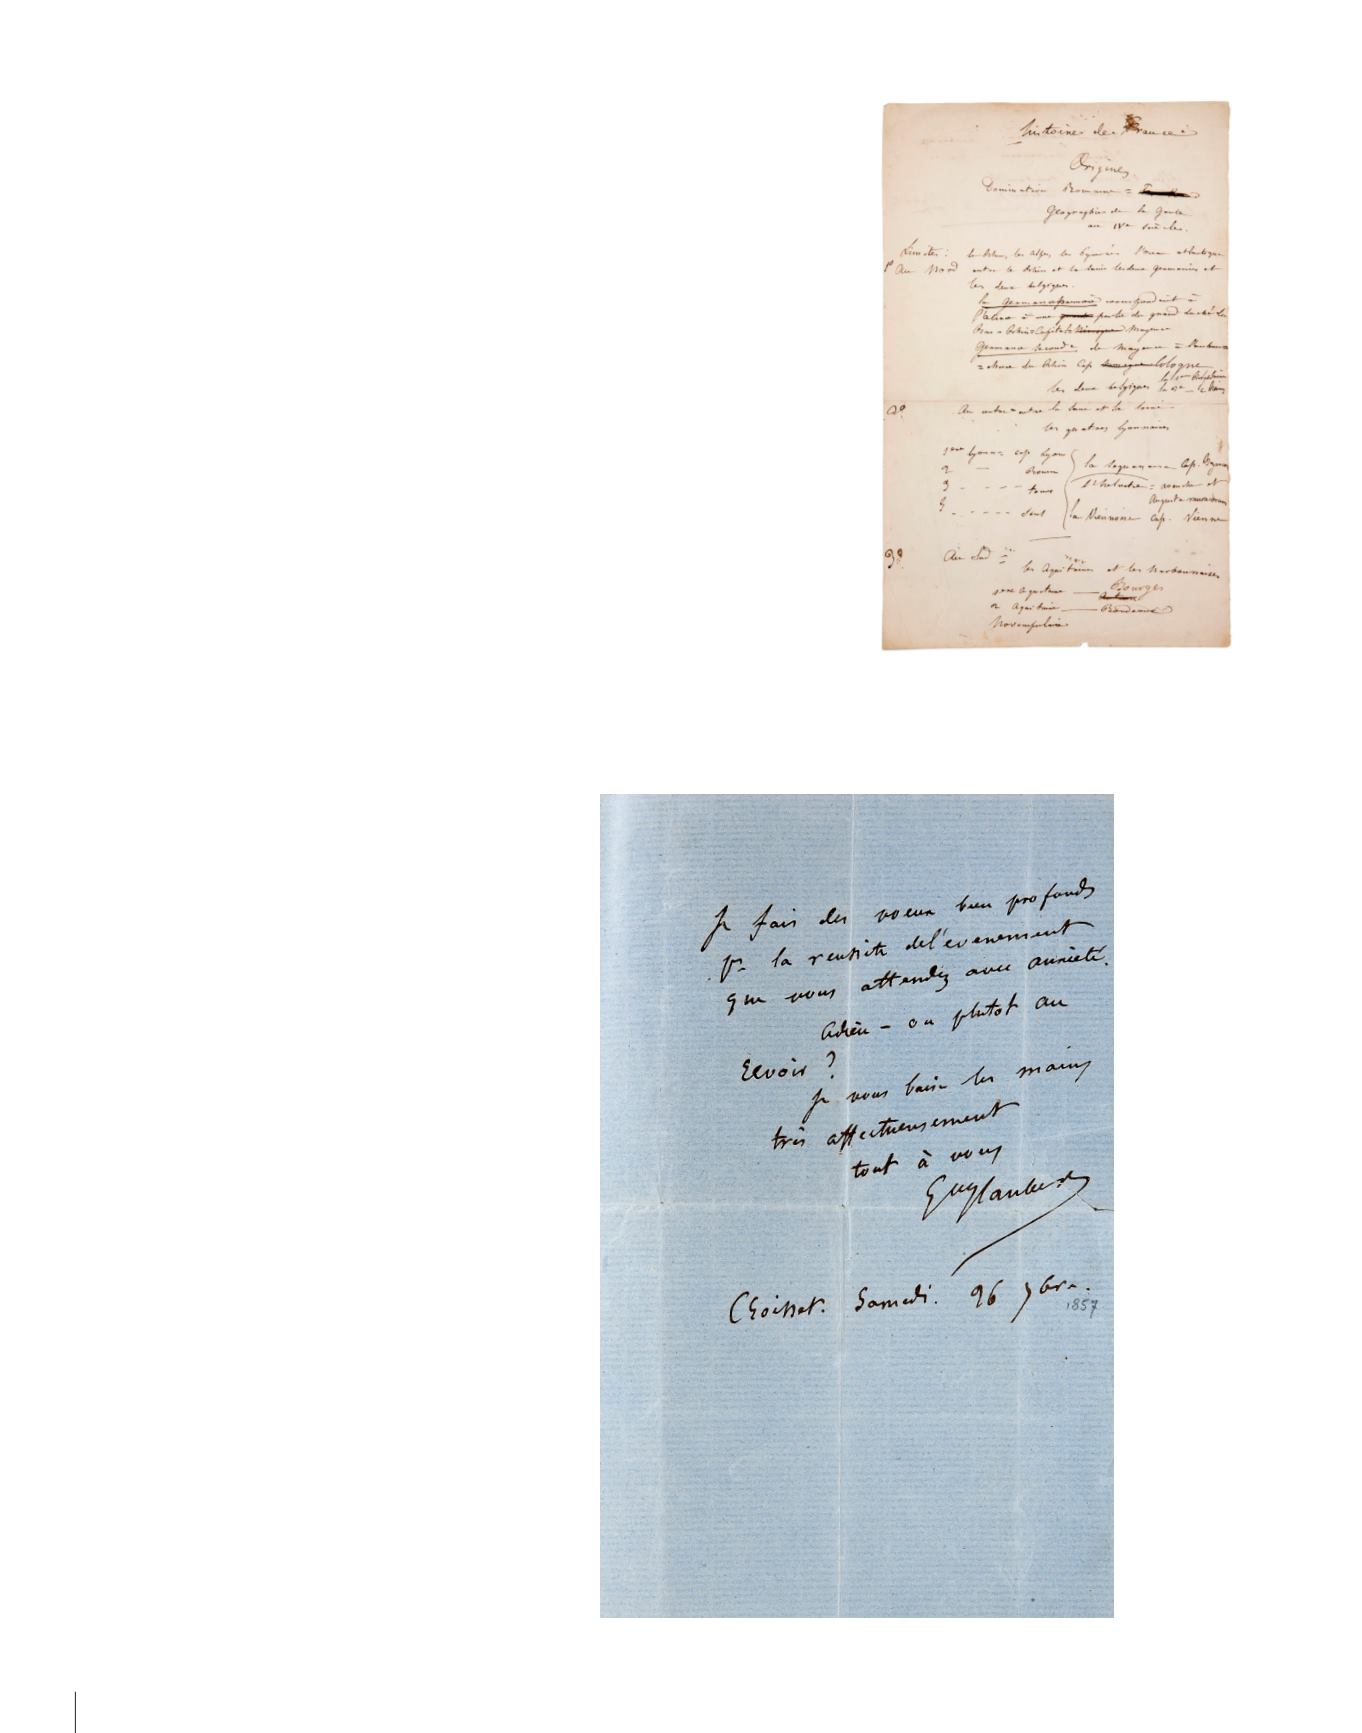 histoire de France
Origines
Domination Romaine =
Géographie de la Gaule
au IVe siècle.
Limites : le Rhin, les Alpes, les Pyrénées l'océan atlantique
1° Au Nord entre le Rhin et la Seine les deux germanies et
les deux belgiques.
la Germanie première correspondait à
l'alsace à une partie du grand duché du
Bas-Rhin = Capitale Mayence
Germanie seconde de Mayence =
= du Rhin Cap Cologne
les deux belgiques
2° Au entre la Seine et la Loire
les quatres lyonnaises
1ere lyonn= cap lyon
2 — Rouen
3 - - - - tours
4 - - - - Sens
la Sequanaise Cap.
l'helvétie =
la Viennoise Cap. Vienne
3° Au Sud =
les Aquitaines et les Narbonnaises
1ere Aquitaine — Bourges
2 Aquitaine — Bordeaux
Novempulanie
Je fais des voeux bien profonds
pr la reussite de l'evenement
que vous attendez avec anxieté.
Adieu – ou plutot au
Revoir ?
Je vous baise les mains
très affectueusement
tout à vous
GveFlaubert
Croisset. Samedi. 26 7bre.
1857